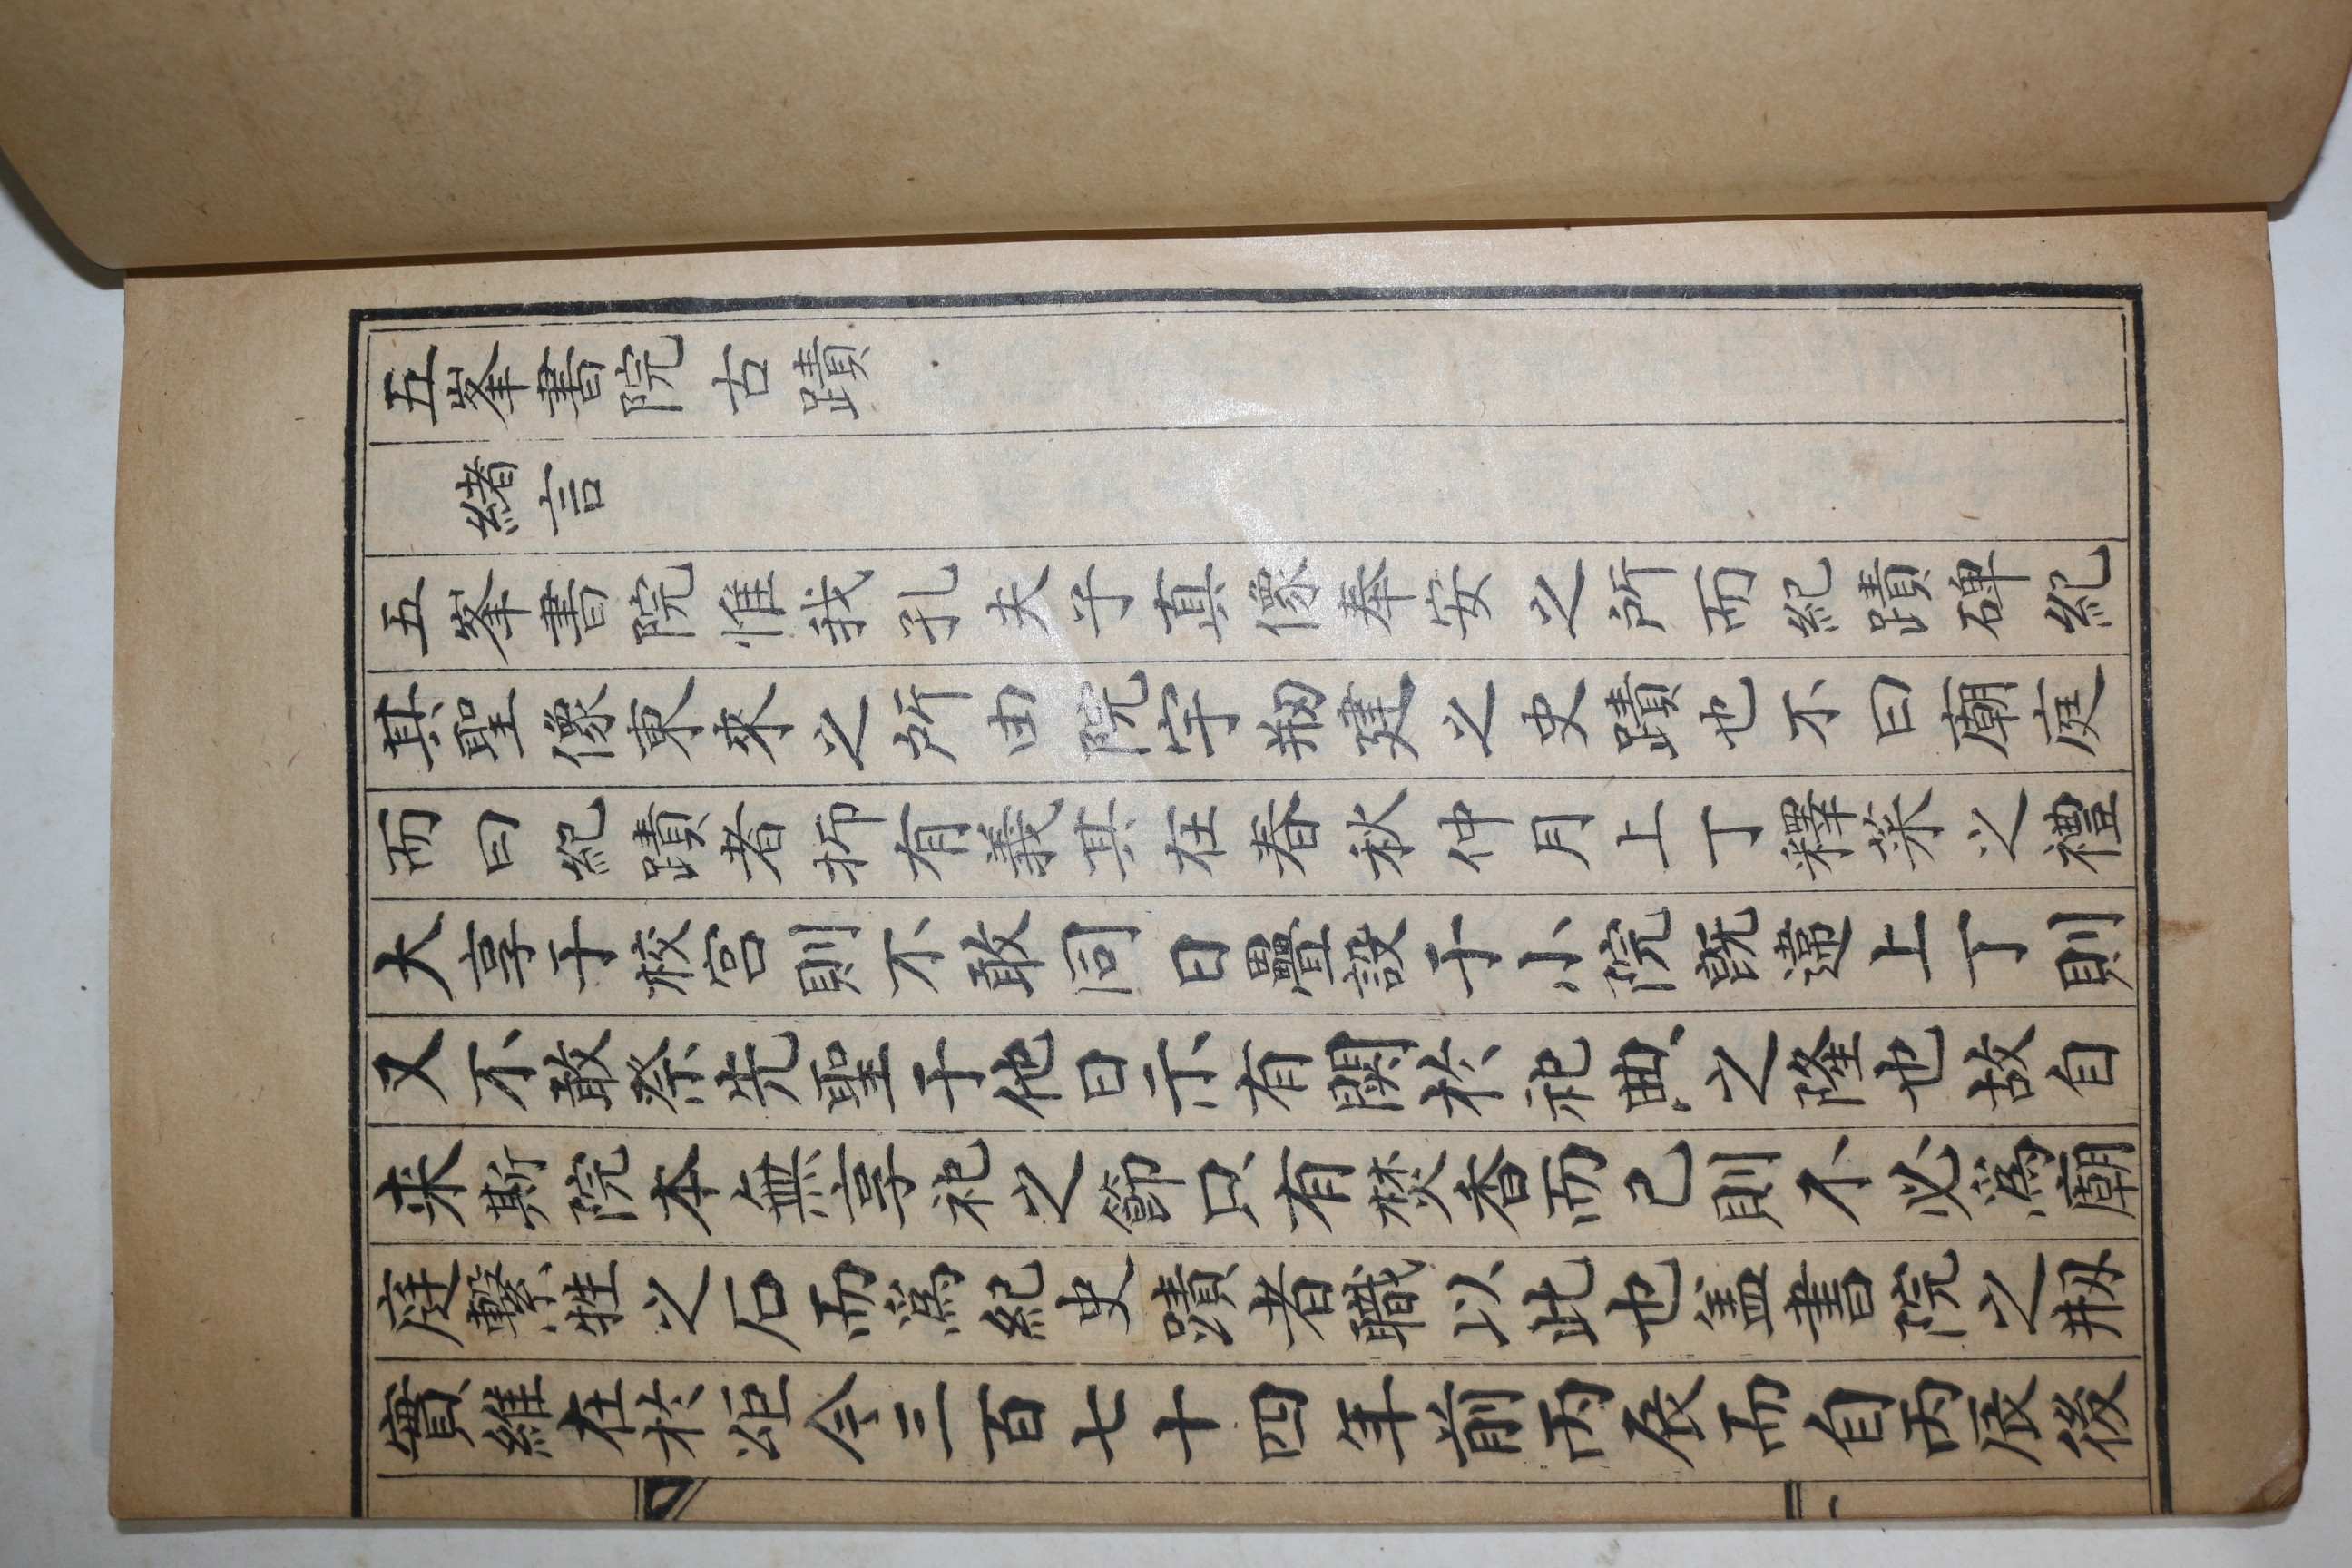 五峯書院古蹟
緒言
五峯書院惟我孔夫子真像奉安之所而紀蹟碑紀
其聖像東來之所由院宇刱建之史蹟也不曰廟庭
而曰紀蹟者抑有義其在春秋仲月上丁釋菜之禮
大享于校宮則不敢同日疊設于小院旣違上丁則
又不敢祭先聖于他日示有関於祀典之隆也故自
来斯院本無享祀之節只有焚香而已則不必爲廟
庭繫牲之石而爲紀史蹟者職以此也盖書院之刱
實維在於岠今三百七十四年前丙辰而自丙辰後
一